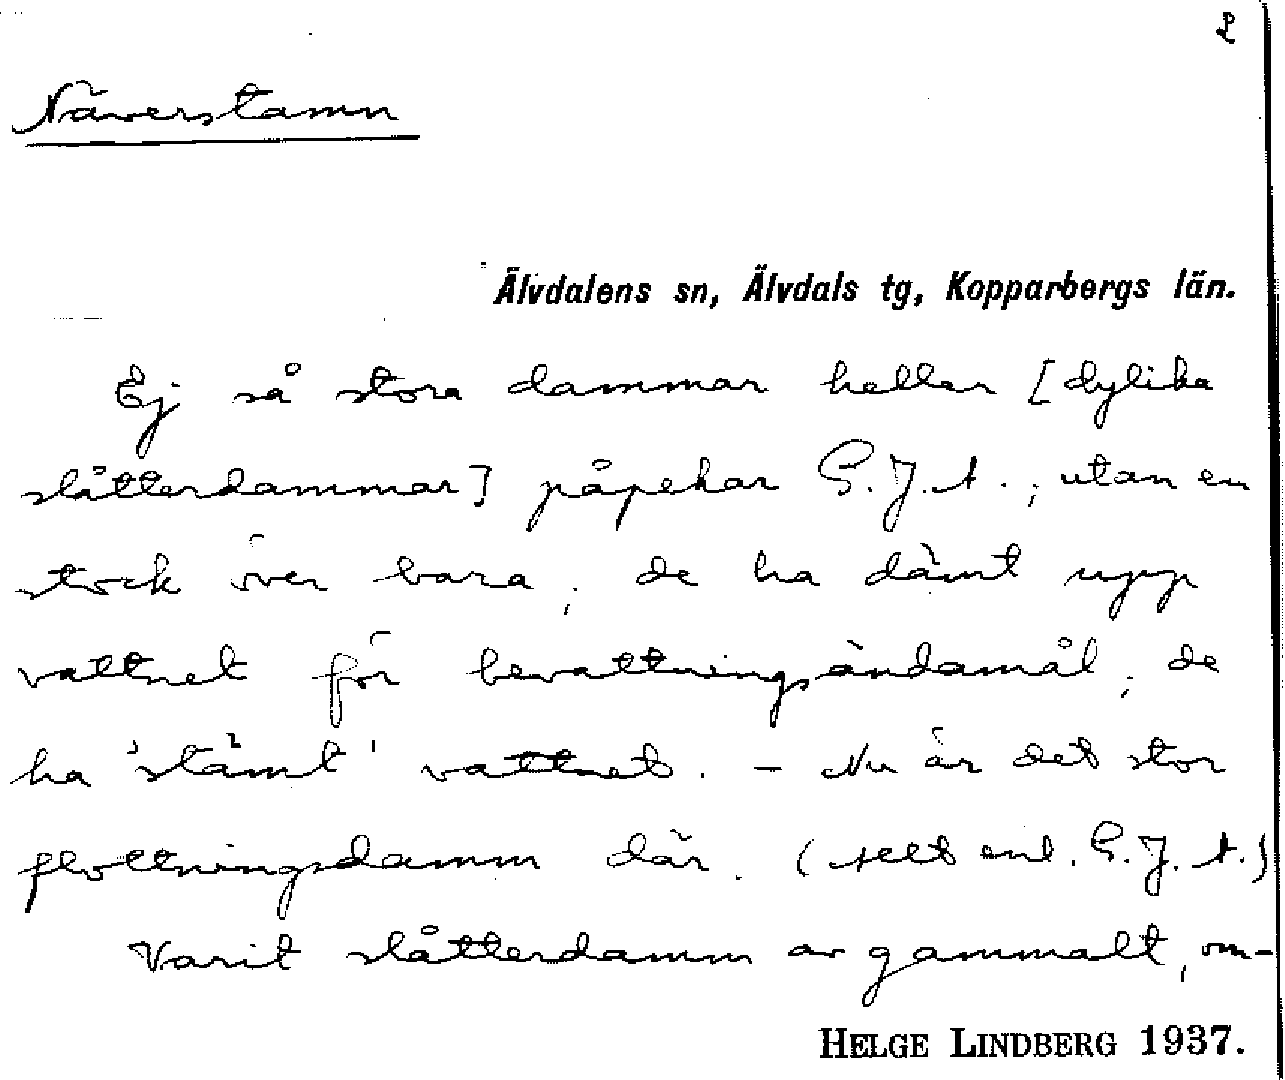 2
Näverstamn
Älvdalens sn, Älvdals tg, Kopparbergs län.
Ej så stora dammar heller [dylika
slåtterdammar] påpekar G.J.A., utan en
stock över bara, de ha dämt upp
vattnet för bevattningsändamål, de
ha 'stämt' vattnet. - Nu är det stor
flottningsdamm där. (Allt enl. G.J.A.)
Varit slåtterdamm av gammalt, om-
HELGE LINDBERG 1937.